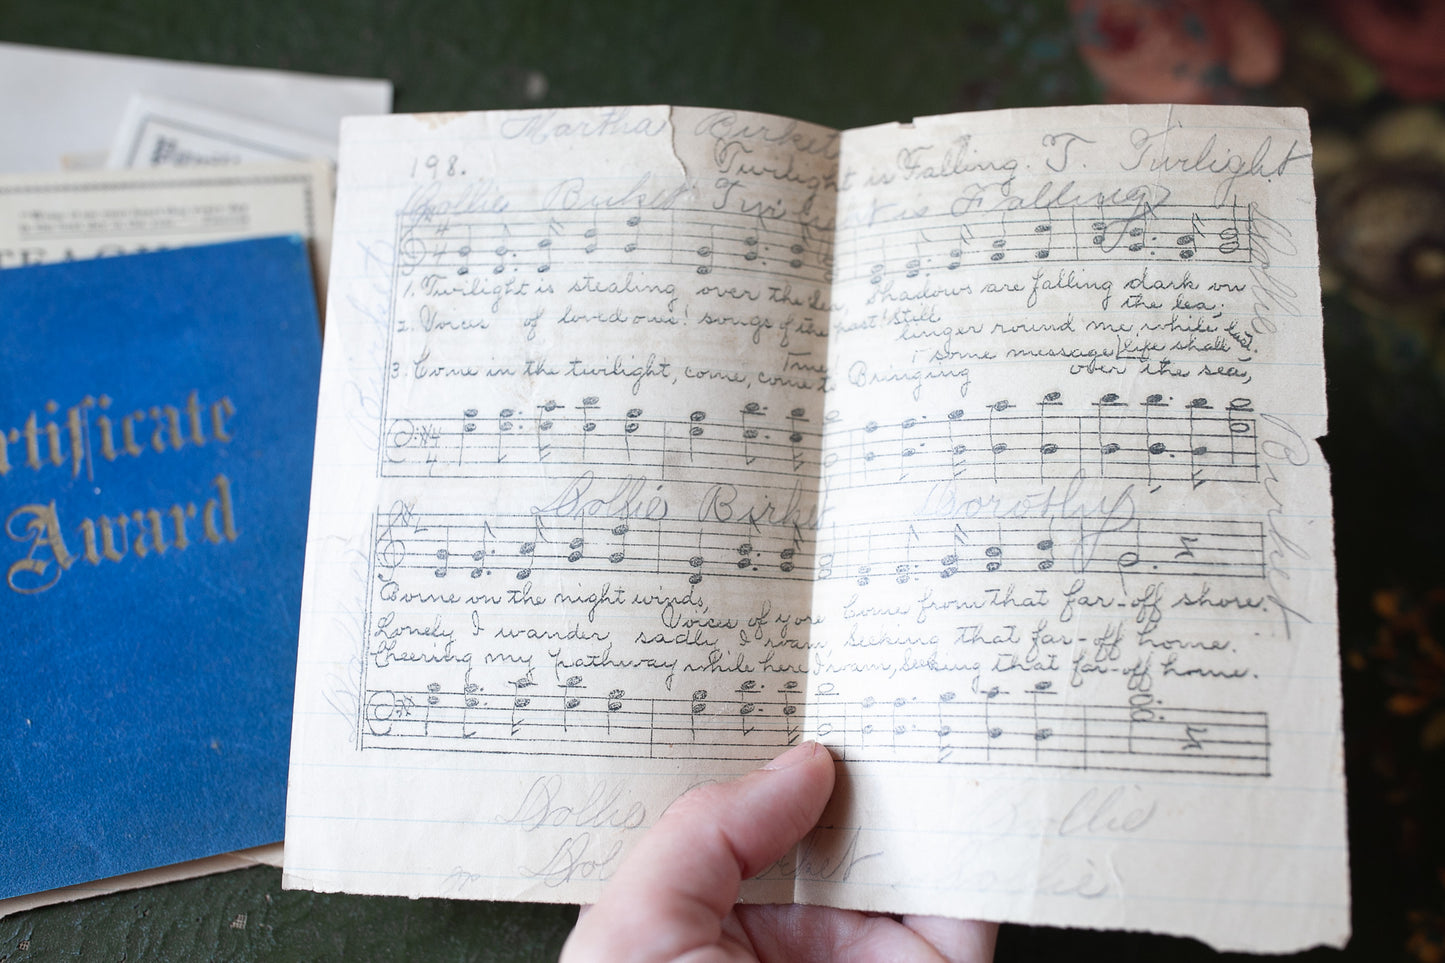 Martha Birket
198.
Twilight is Falling. T. Twilight
Dollie Birket Twilight is Falling
1. Twilight is stealing over the sea, Shadows are falling dark on
the lea;
2. Voices of loved ones! songs of the past! Still
linger round me while life shall last.
3. Come in the twilight, come, come to me! Bringing some message over the sea,
Dollie Birket Dorothy
Borne on the night winds, Voices of yore Come from that far-off shore.
Lonely I wander, sadly I roam, Seeking that far-off home.
Cheering my pathway while here I roam, Seeking that far-off home.
Dollie
Dollie
Birket
Dollie
Dollie Birket
Birket
Certificate
Award